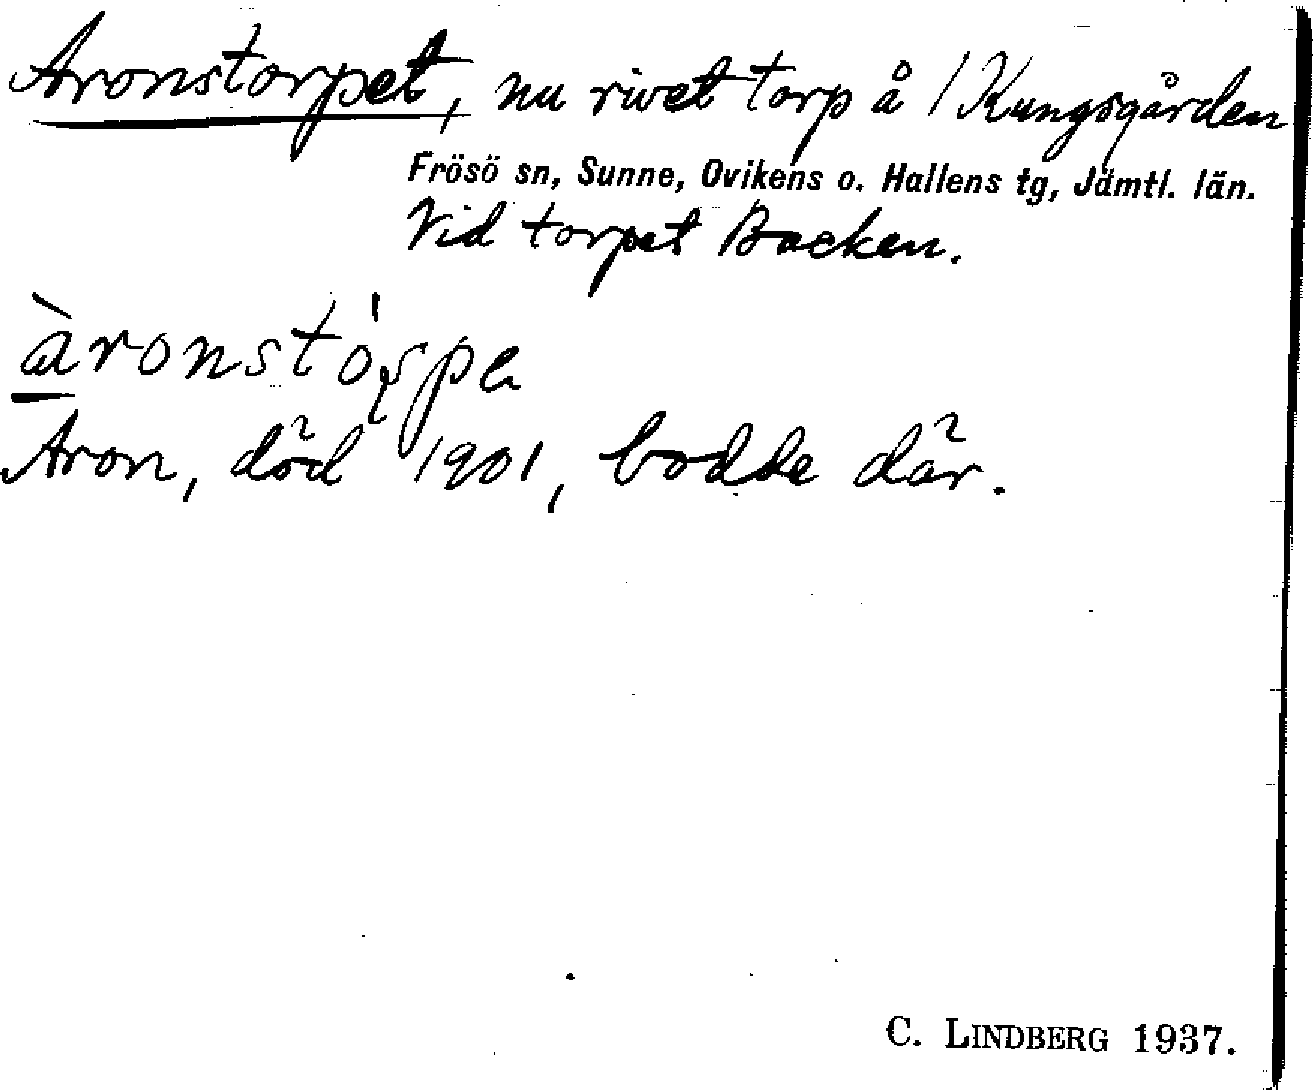 Aronstorpet, nu rivet torp å / Kungsgården
Frösö sn, Sunne, Ovikens o. Hallens tg, Jämtl. län.
Vid torpet Backen.
Aron, död 1901, bodde där.
C. LINDBERG 1937.